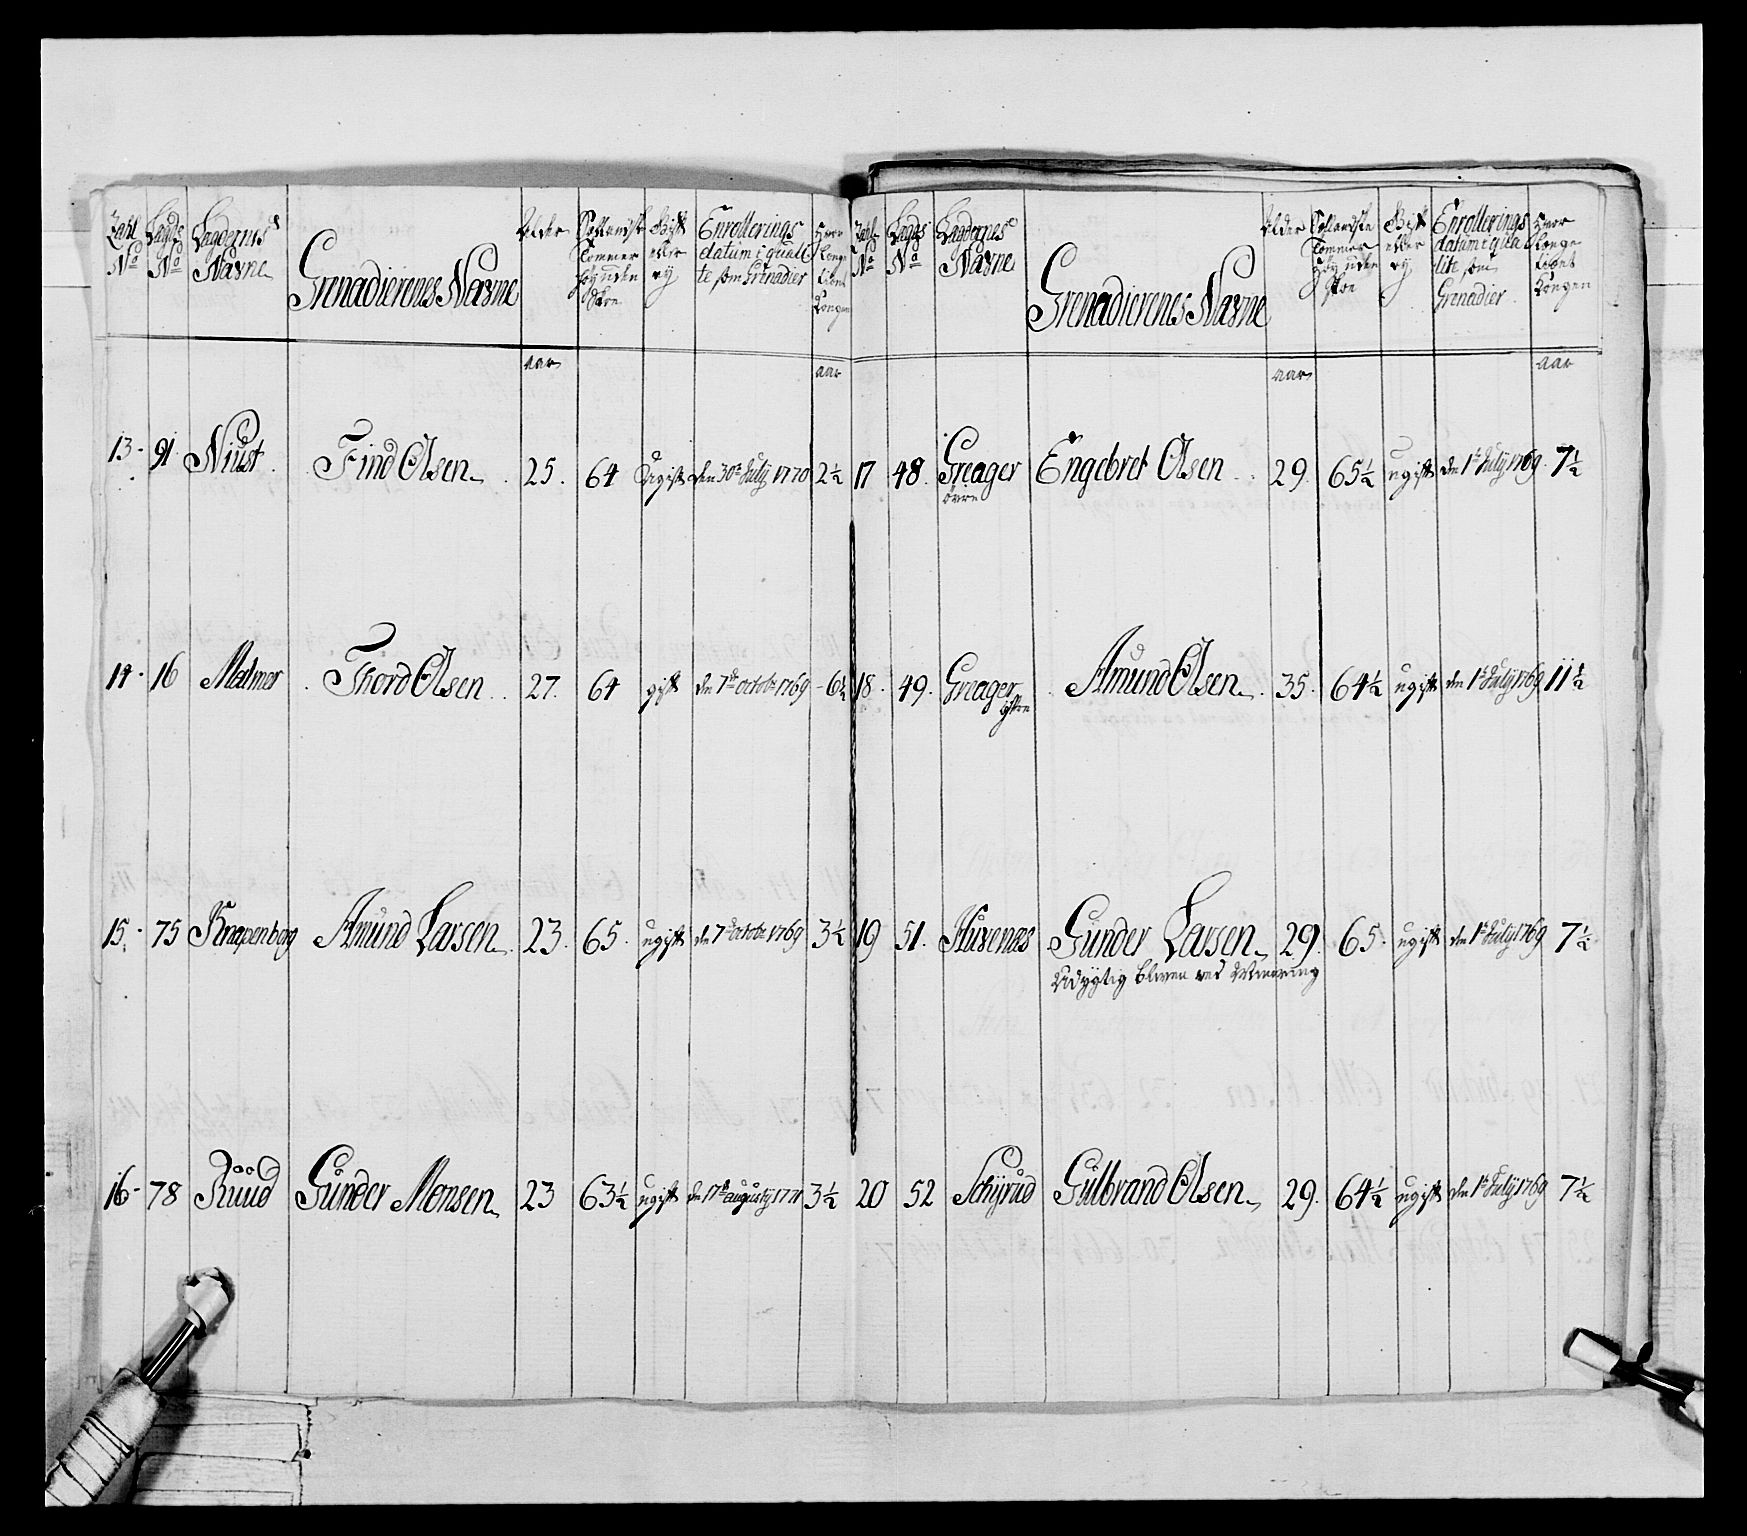 Zahl No | Lagds No | Lagdernes Navne | Grenadierenes Navne | Alder | Tommer høy uden Skoe | Gift eller ey | Enrollerings datum i qualite som Grenadier | Hvor Længe tient Kongen
aar | aar
13 - 91 Niust Find Olsen 25. 64 Ugift den 30te July 1770 2½
14 - 16 Malmer Thord Olsen 27. 64 gift den 7de octobr 1769 - 6½
15. - 75 Knapenborg Amund Larsen 23. 65. ugift den 7de octobr 1769 3½
16 - 78 Ruud Gunder Monsen 23 63½ ugift den 17de augusty 1771 3½
Zahl No | Lagds No | Lagdernes Navne | Grenadierenes Navne | Alder | Tommer høy uden Skoe | Gift eller ey | Enrollerings datum i qualite som Grenadier | Hvor Længe tient Kongen
aar | aar
17 48. Greager Engebret Olsen 29. 65½ ugift den 1te July 1769. 7½
övre
18. 49. Greager Amund Olsen 35. 64½ ugift den 1te July 1769 11½
19 51. Huvenæs Gunder Larsen 29. 65. ugift den 1te July 1769 7½
Udygtig bleven ved
20 52 Schÿrud Gulbrand Olsen 29. 64½ ugift den 1te July 1769 7½